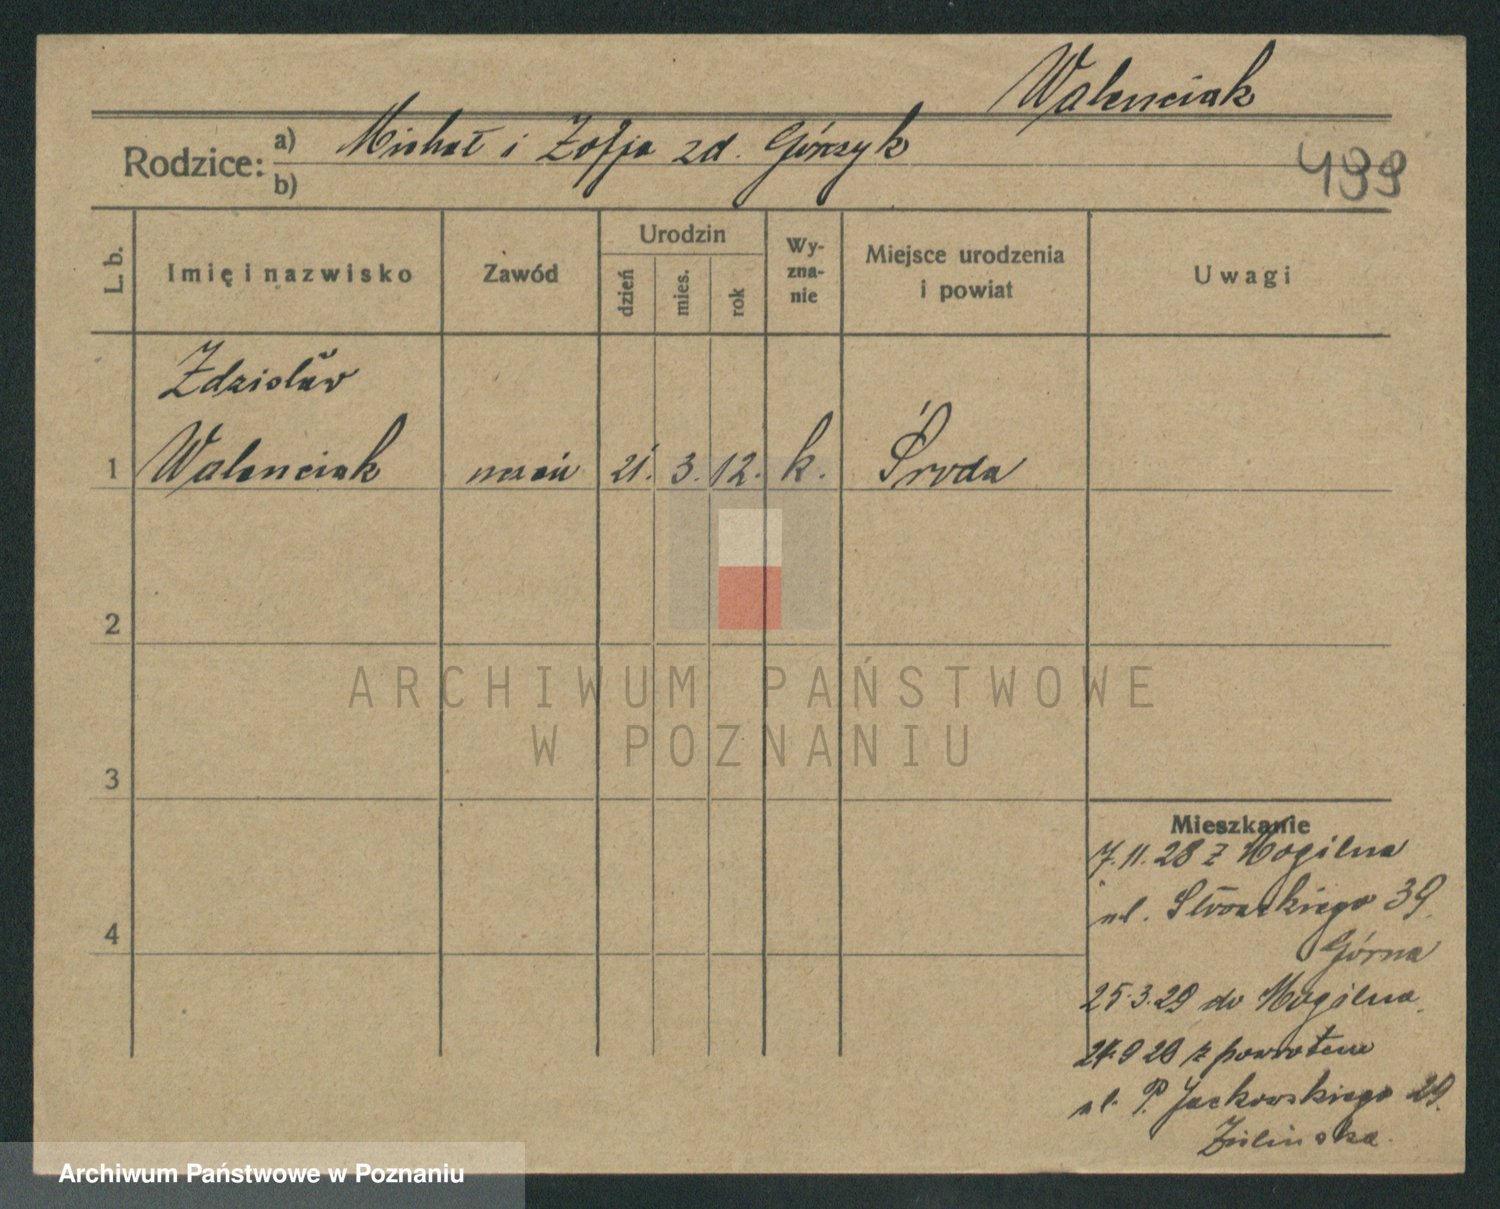 Walenciak
Rodzice: a) Michał i Zofja zd. Górczyk
b)
499
L. b.
Imię i nazwisko
Zawód
Urodzin
dzień
mies.
rok
Wy-
zna-
nie
Miejsce urodzenia
i powiat
Uwagi
Zdzisław
1 Walenciak uczeń 21. 3. 12. k. Środa
2
3
4
ARCHIWUM PAŃSTWOWE
W POZNANIU
Mieszkanie
7.11.28 z Mogilna
ul. 39
Górna
25.3.29 do Mogilna.
9 z powrotem
ul. P. Jackowskiego 29.
Zielińska.
Archiwum Państwowe w Poznaniu